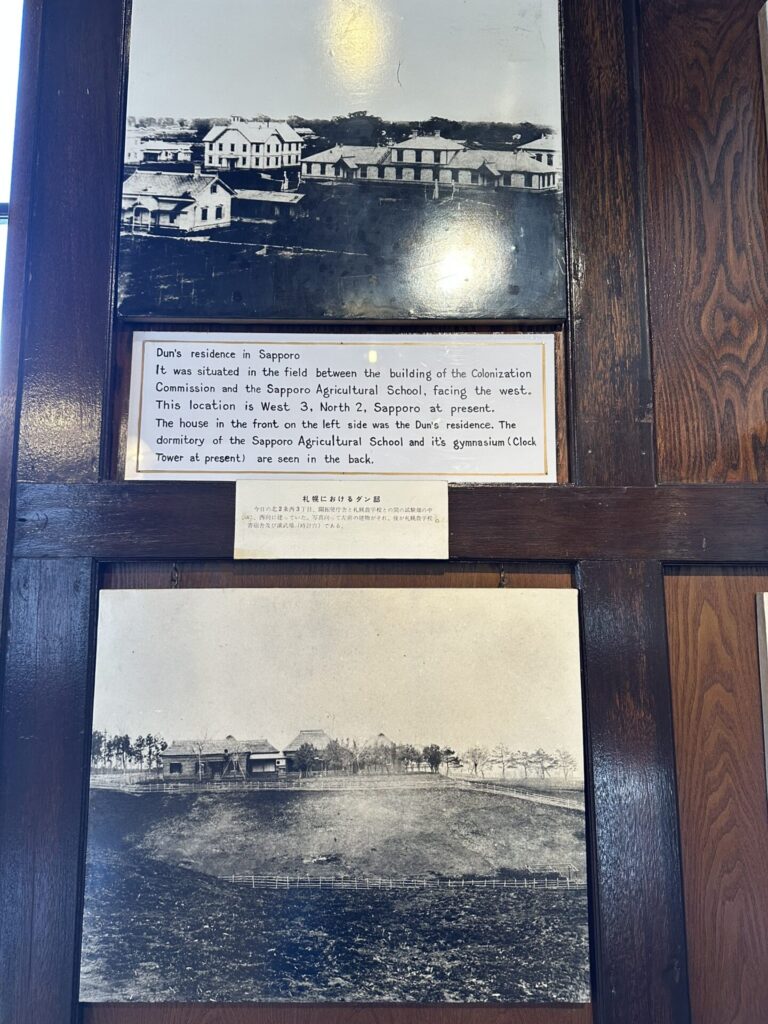 Dun's residence in Sapporo
It was situated in the field between the building of the Colonization
Commission and the Sapporo Agricultural School, facing the west.
This location is West 3, North 2, Sapporo at present.
The house in the front on the left side was the Dun's residence. The
dormitory of the Sapporo Agricultural School and it's gymnasium (Clock
Tower at present) are seen in the back.
札幌におけるダン邸
今日の北2条西3丁目、開拓使庁舎と札幌農学校との間の試験畑の中
に、西向に建っていた。写真向って左前の建物がそれ。後が札幌農学校
寄宿舎及び演武場(時計台)である。